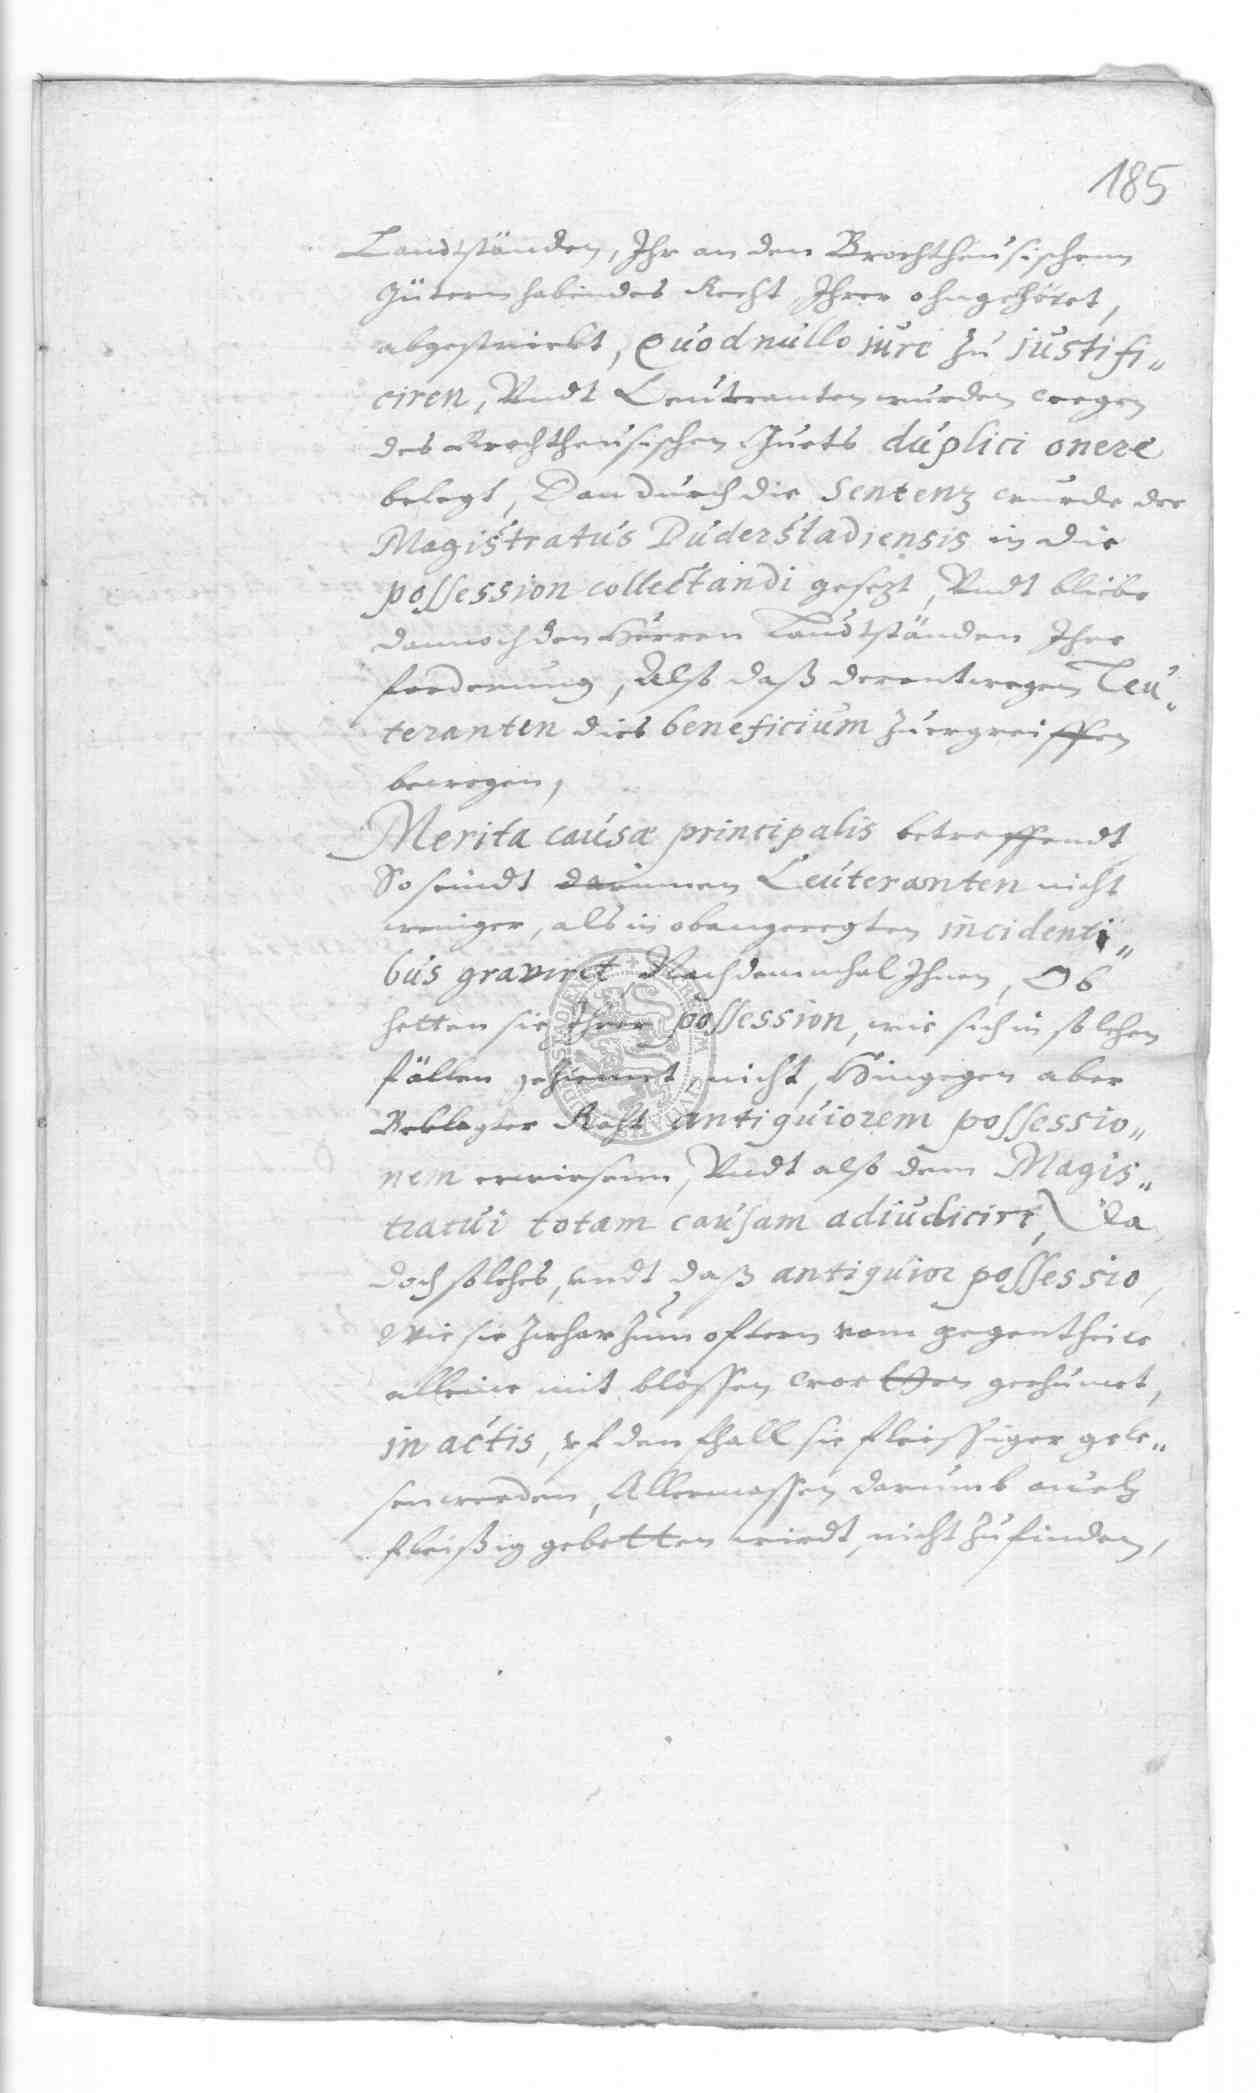 185
Landtständen, Ihr an den Brochtheusischenn
Gütern habendes Recht, Ihrer ohngehöret,
abgestrickt, Quod nullo iure zu justifi„
ciren, Vndt Leuteranten wurden wegen
des Brochtheusischen Guets duplici onere
belegt, Dan durch die Sentenz wurde der
Magistratus Duderstadiensis in die
possession collectandi gesezt, Vndt bliebe
dannoch den Herren Landtständen Ihre
forderung, Also daß derentwegen Leu„
teranten dies beneficium zu ergreiffen
bewogen,
Merita causæ principalis betreffendt
So seindt darinnen Leuteranten nicht
weniger, als in obangeregten incidenti„
bus graviret Nachdemmahl Ihnen, Ob
hetten sie Ihrer possession, wie sich in solchen
fällen geziemet, nicht, Hingegen aber
Beklagter Raht antiquiorem possessio„
nem erwiesenn, Vndt also dem Magis„
tratui totam causam adiudicirt, Da
doch solches, vndt daß antiquior possessio,
Wie sie zwar zum oftern vom gegentheile
alleine mit blossen wortten gerhümet,
in actis, vf den fhall sie fleissiger gele„
sen werden, Allermassen darumb auch
fleißig gebetten wirdt, nicht zu finden,